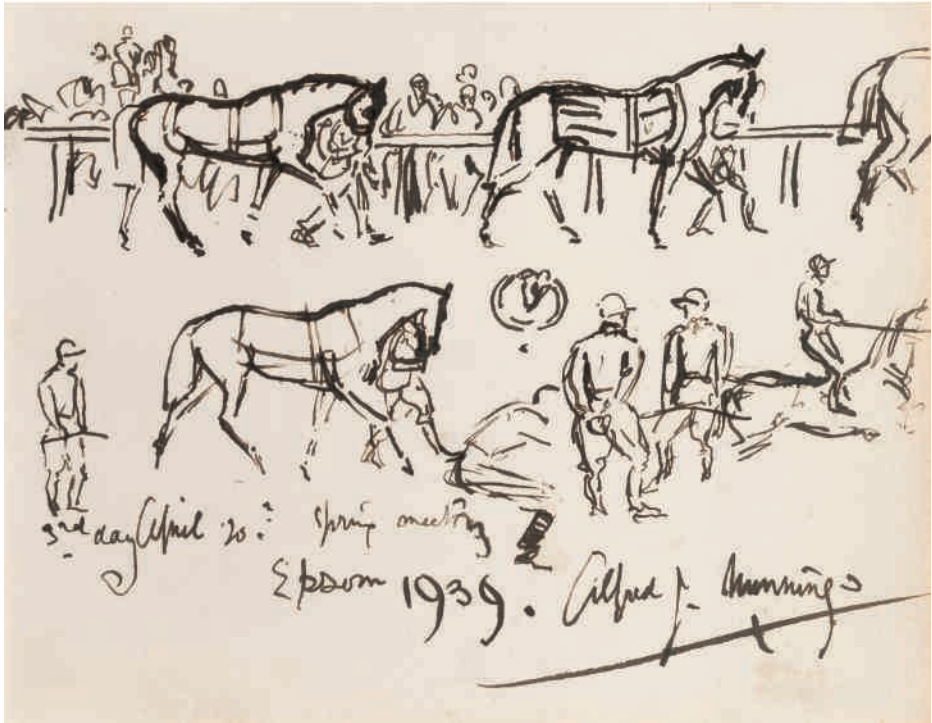 3rd day April 20th Spring meeting
Epsom 1939. Alfred J. Munnings